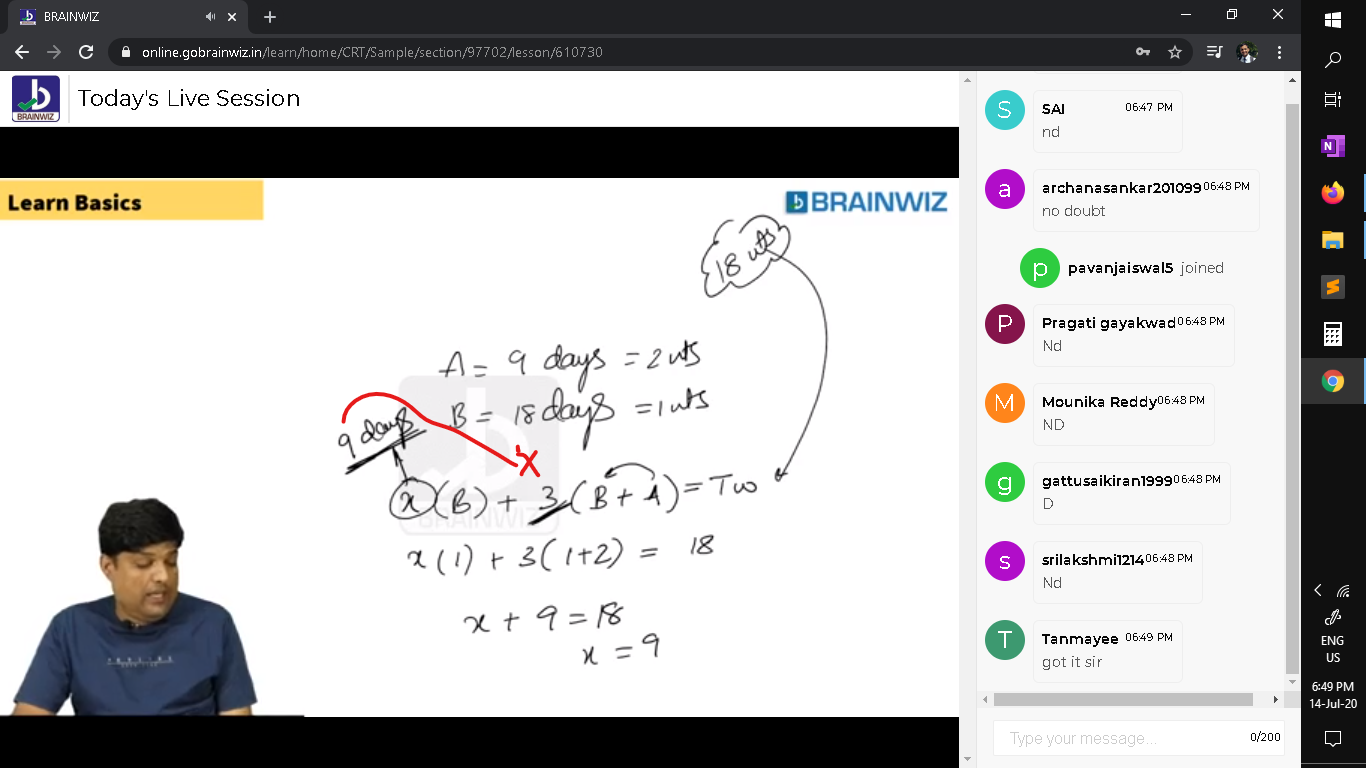 BRAINWIZ
online.gobrainwiz.in/learn/home/CRT/Sample/section/97702/lesson/610730
BRAINWIZ
Today's Live Session
Learn Basics
BRAINWIZ
18 uts
A = 9 days = 2 uts
B = 18 days = 1 uts
9 days
x
x (B) + 3 (B + A) = Tw
BRAINWIZ
x (1) + 3 (1+2) = 18
x + 9 = 18
x = 9
S
SAI 06:47 PM
nd
a
archanasankar201099 06:48 PM
no doubt
p
pavanjaiswal5 joined
P
Pragati gayakwad 06:48 PM
Nd
M
Mounika Reddy 06:48 PM
ND
g
gattusaikiran1999 06:48 PM
D
s
srilakshmi1214 06:48 PM
Nd
T
Tanmayee 06:49 PM
got it sir
Type your message... 0/200
ENG
US
6:49 PM
14-Jul-20